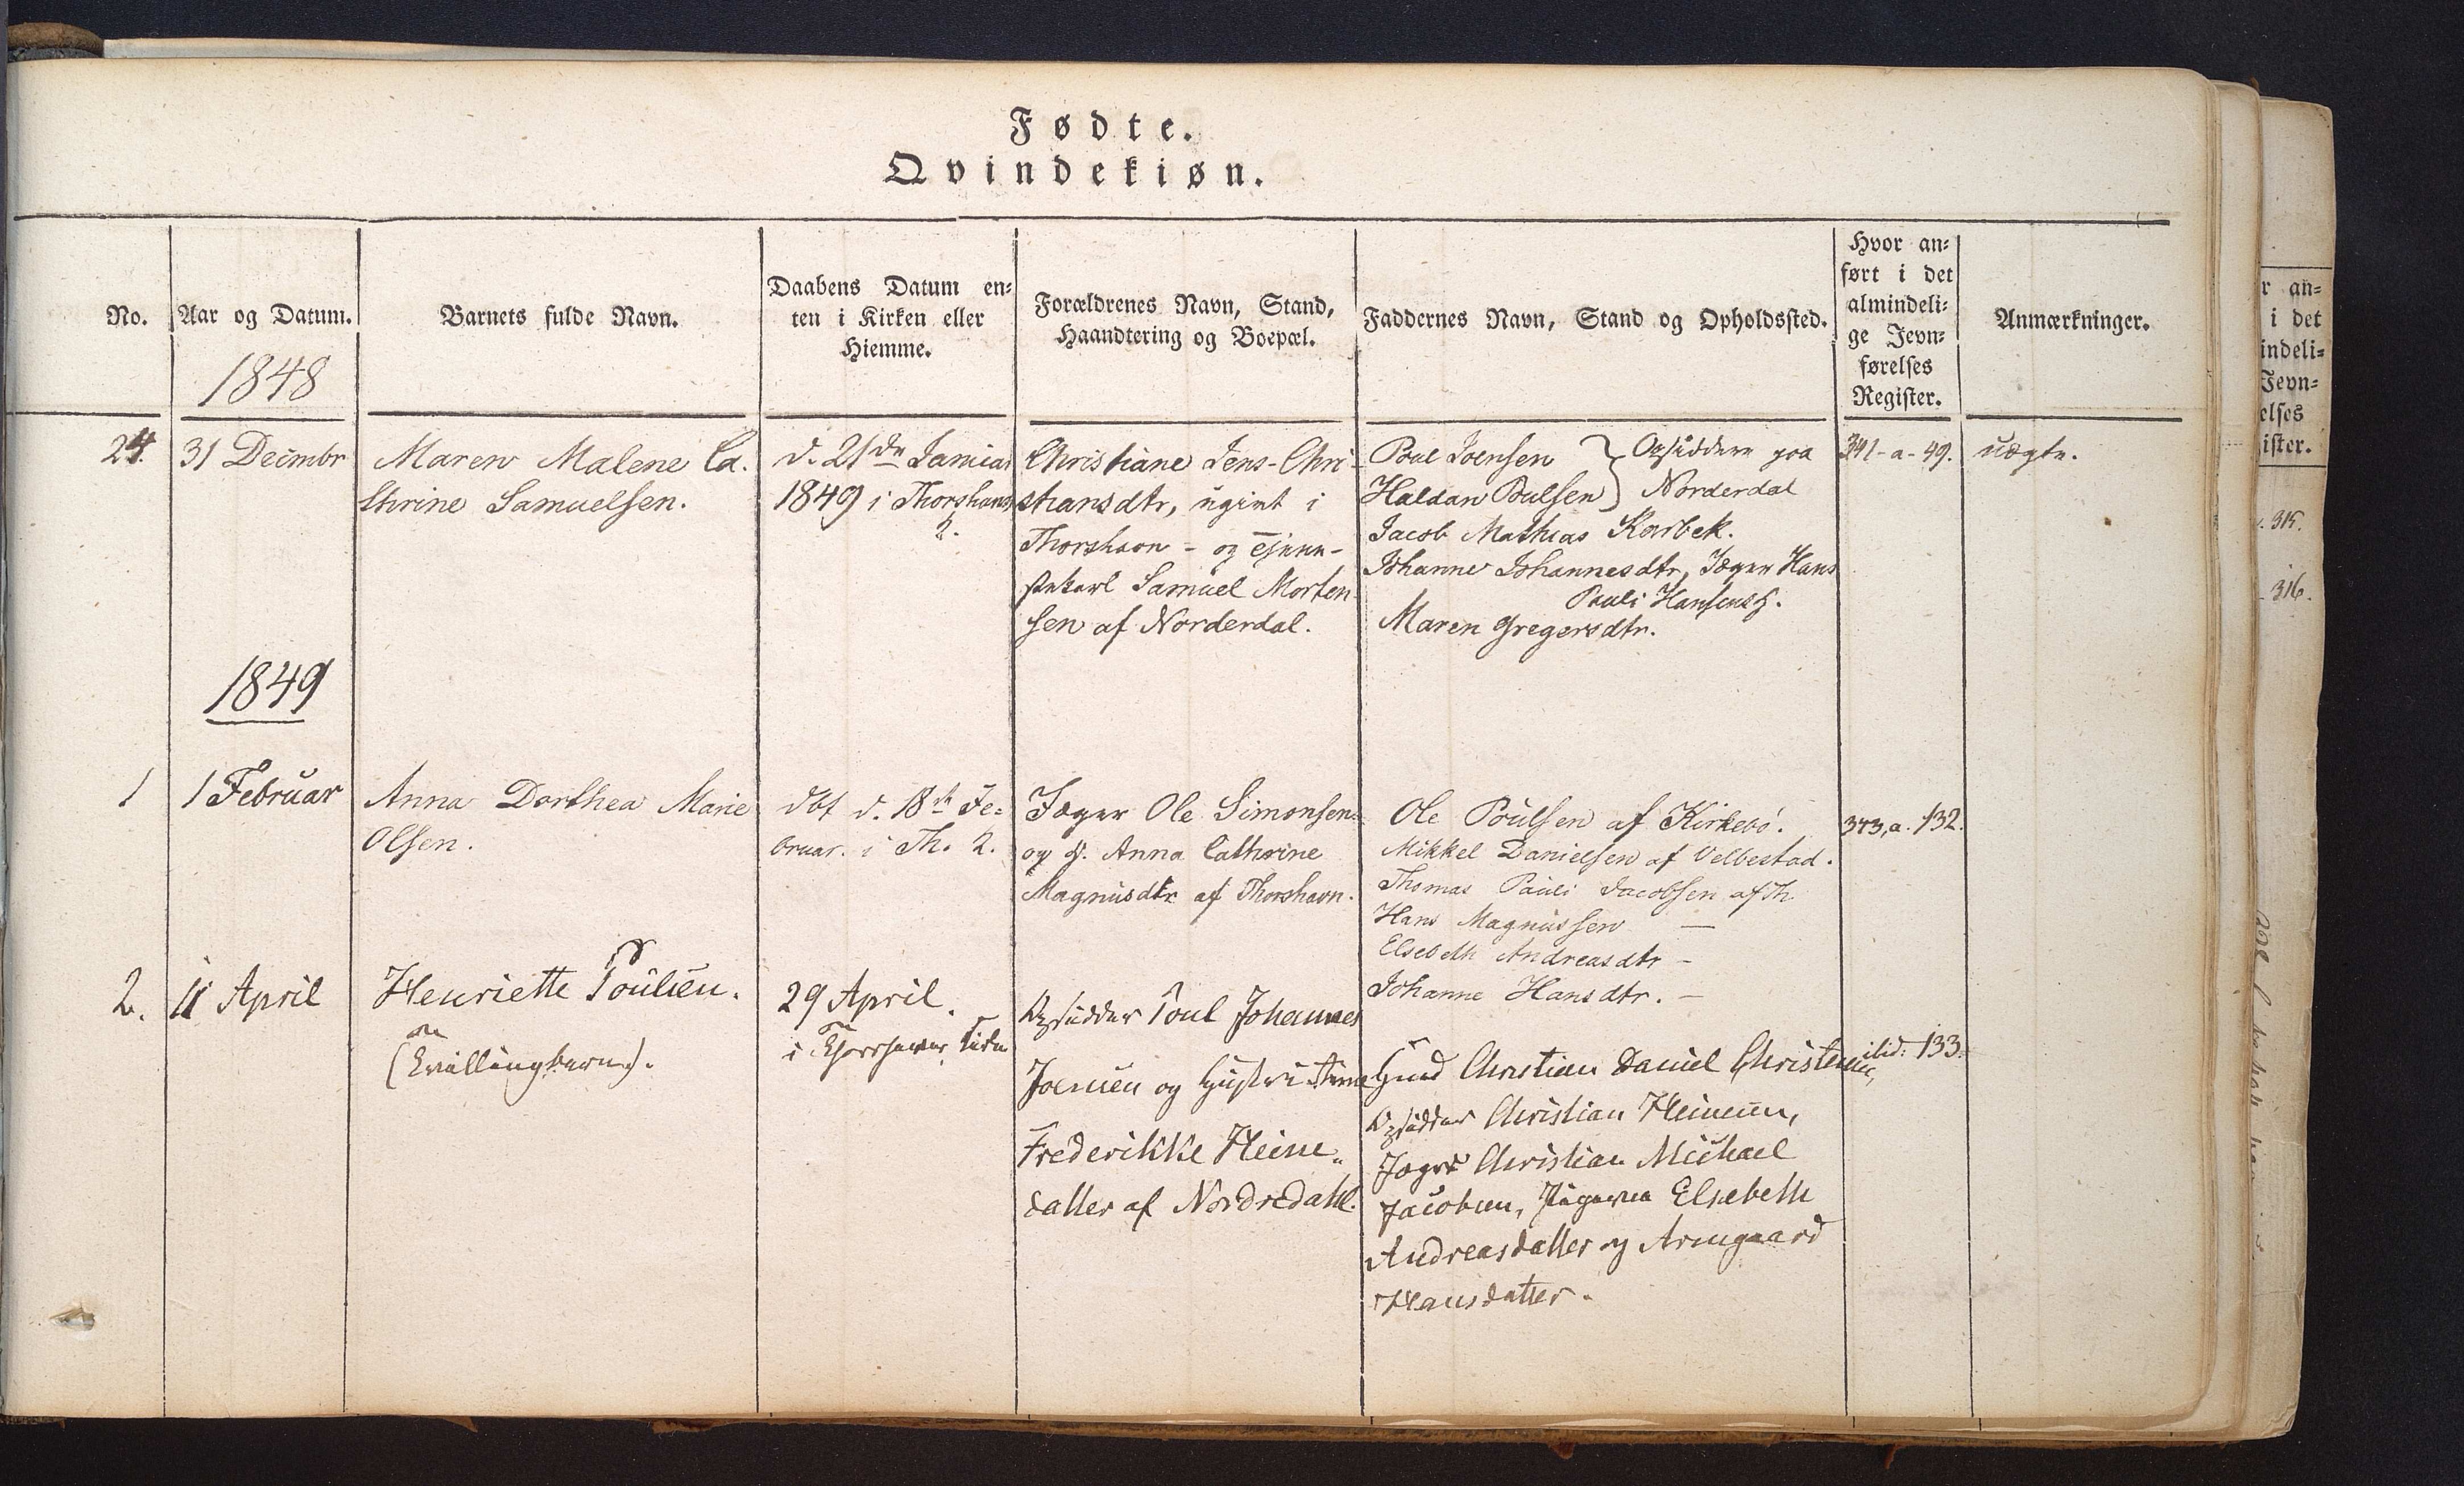 Fødte.
Qvindekiøn.
No.
Aar og Datum.
Barnets fulde Navn.
Daabens Datum en-
ten i Kirken eller
Hiemme.
Forældrenes Navn, Stand,
Haandtering og Boepæl.
Faddernes Navn, Stand og Opholdssted.
Hvor an-
ført i det
almindeli-
ge Jevn-
førelses
Register.
Anmærkninger.
1848
24.
31 Decmbr
Maren Malene Ca.
thrine Samuelsen.
d. 21de Januar
1849 i Thorshavns
K.
Christiane Jens-Chri-
stiansdtr, ugivt i
Thorshavn - og Tjene-
stekarl Samuel Morten-
sen af Norderdal.
Poul Joensen
Haldan Poulsen
Opsiddere paa
Norderdal
Jacob Mathias Karbek.
Johanne Johannesdtr, Jæger Hans
Pauli Hansens H.
Maren Gregersdtr.
341-a-49.
uægte.
1849
1
1 Februar
Anna Dorthea Marie
Olsen.
dbt d. 18de Fe-
bruar. i Th. K.
Jæger Ole Simonsen
og H. Anna Cathrine
Magnusdtr af Thorshavn.
Ole Poulsen af Kirkebø.
Mikkel Danielsen af Velbestad.
Thomas Pauli Jacobsen af Th
Hans Magnussen —
Elsebeth Andreasdtr -
Johanne Hansdtr. -
343, a. 132.
2.
11 April
Henriette Poulsen.
(Tvillingbarn).
29 April.
i Thorshavns Kirke
Opsidder Poul Johannes
Joensen og Hustru Anna
Frederikke Heine-
datter af Nordredahl.
Christian Daniel Christensen,
Opsidder Christian Heinesen,
Jæger Christian Michael
Jacobsen, Pigerne Elsebeth
Andreasdatter og Armgaard
Hansdatter.
ibid: 133.
r an-
i det
indeli-
Jevn-
elses
ister.
315.
316.